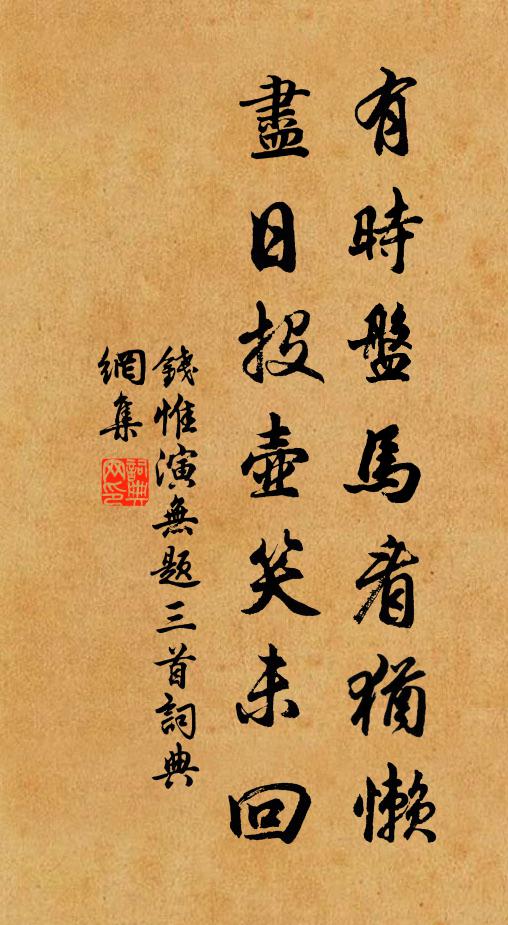 有時盤馬看猶懶
盡日投壺笑未回
錢惟演無題三首詞典
網集
詞典
网印